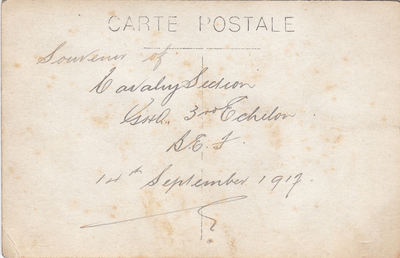 CARTE POSTALE
Souvenir of
Cavalry Section
G.H.Q. 3rd Echelon
B.E.F.
14th September 1917.